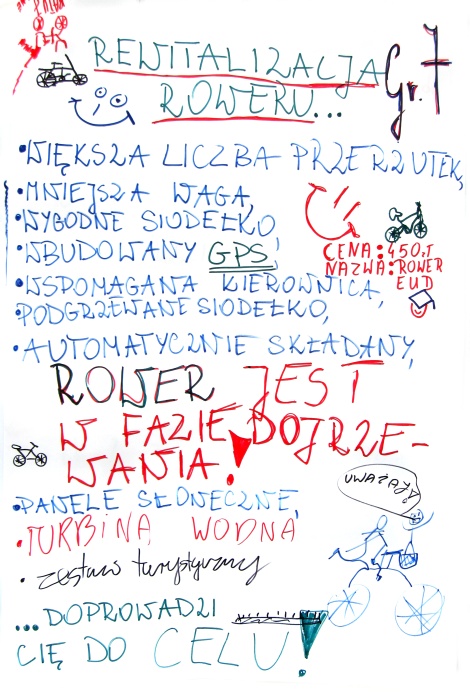 REWITALIZACJA
ROWERU...
Gr. 7
•WIĘKSZA LICZBA PRZERZUTEK,
•MNIEJSZA WAGA,
•WYGODNE SIODEŁKO,
•WBUDOWANY GPS,
•WSPOMAGANA KIEROWNICA,
•PODGRZEWANE SIODEŁKO,
•AUTOMATYCZNIE SKŁADANY,
CENA: 450,-
NAZWA: ROWER
EUD
ROWER JEST
W FAZIE DOJRZE-
WANIA!
•PANELE SŁONECZNE,
•TURBINA WODNA
• zestaw turystyczny
UWAŻAJ!
...DOPROWADZI
CIĘ DO CELU!